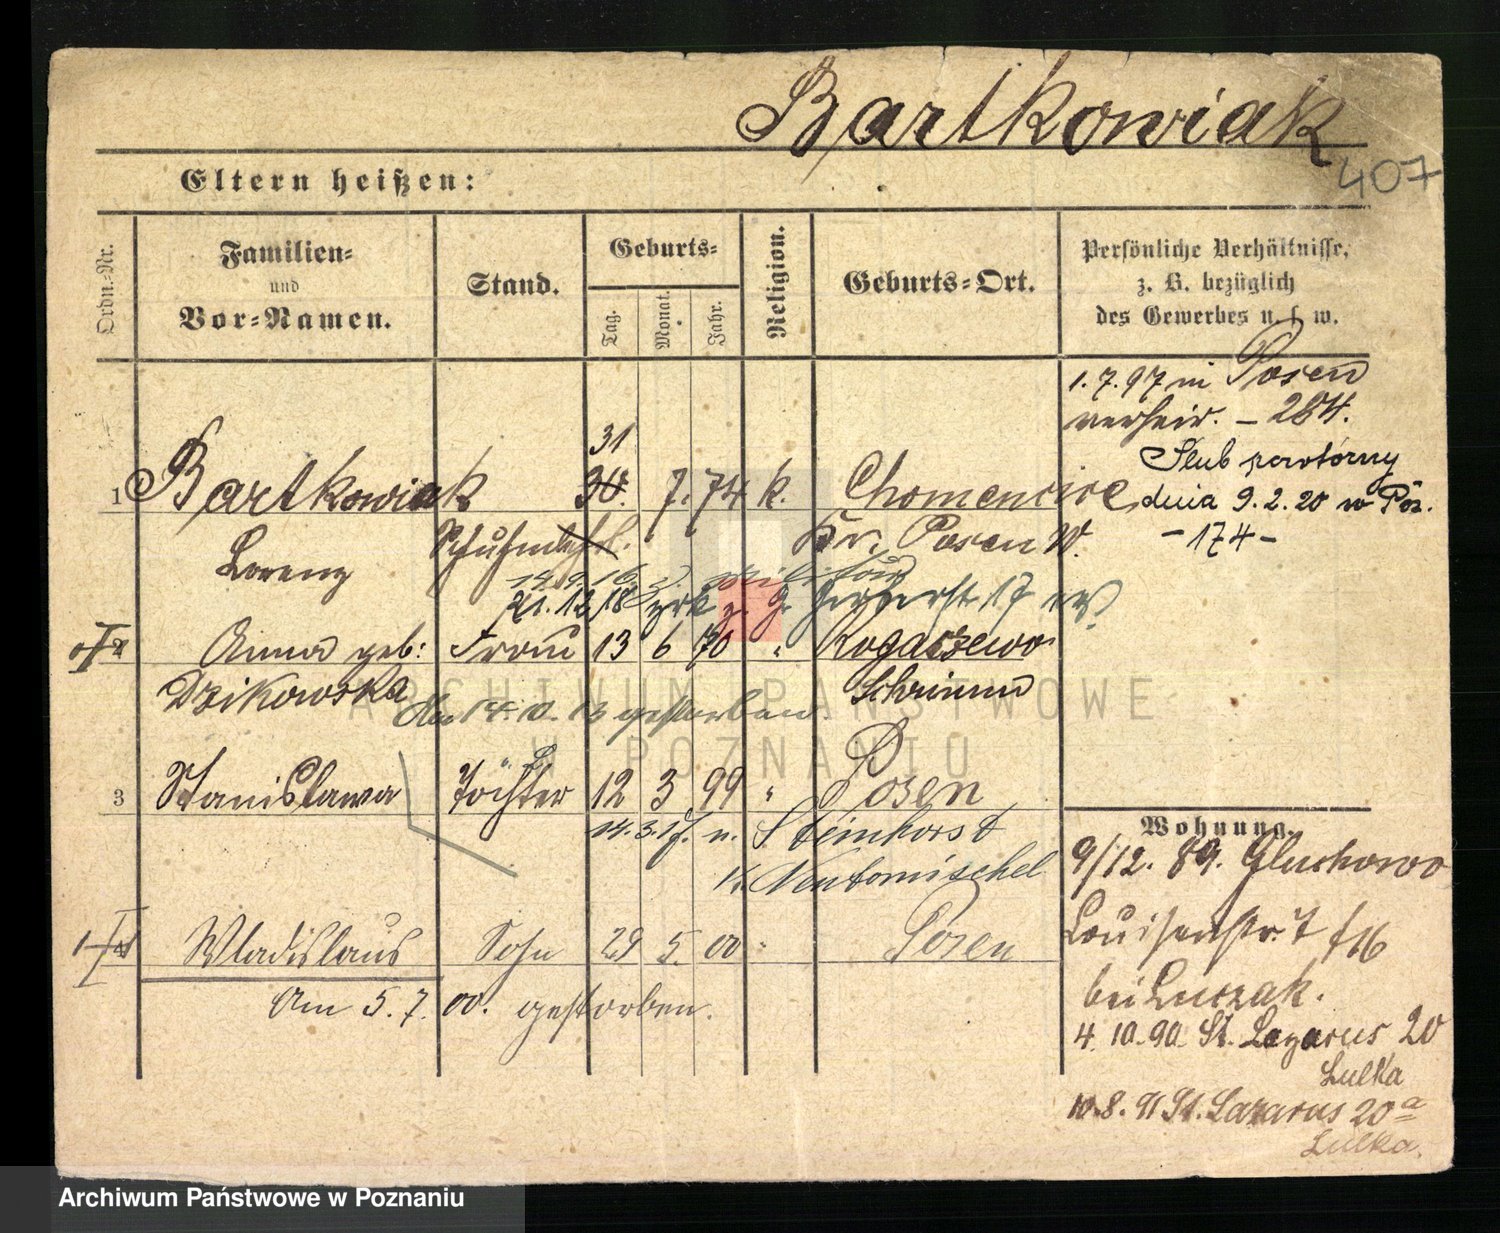 Bartkowiak
407
Eltern heißen:
Ordn.-Nr.
Familien-
und
Vor-Namen.
Stand.
Geburts-
Tag.
Monat.
Jahr.
Religion.
Geburts-Ort.
Persönliche Verhältnisse,
z. B. bezüglich
des Gewerbes u. s. w.
1.7.97 in Posen
verheir. – 284.
Ślub powtórny
dnia 9.2.20 w Poz.
– 174 –
31
1 Bartkowiak 30. 7. 74 k.
Lorenz
Kr. Posen W.
14.9.16
21.12.18 z. 17
2 Anna geb: Frau 13 6 70 " Rogaczewo
Dzikowska Schrimm
Am 14.10.13 gestorben
3 Stanislawa Tochter 12 3 99 " Posen
14.3.17. n. Steinhorst
Kr. Neutomischel
4 Wladislaus Sohn 29 5. 00 " Posen
Am 5.7.00. gestorben.
Wohnung.
9/12. 89. Gluchowo
Louisenstr. 7
bei Luczak.
4.10.90. St. Lazarus 20
Lulka
10.8.91 St. Lazarus 20a
Lulka.
ARCHIWUM PAŃSTWOWE
W POZNANIU
Archiwum Państwowe w Poznaniu